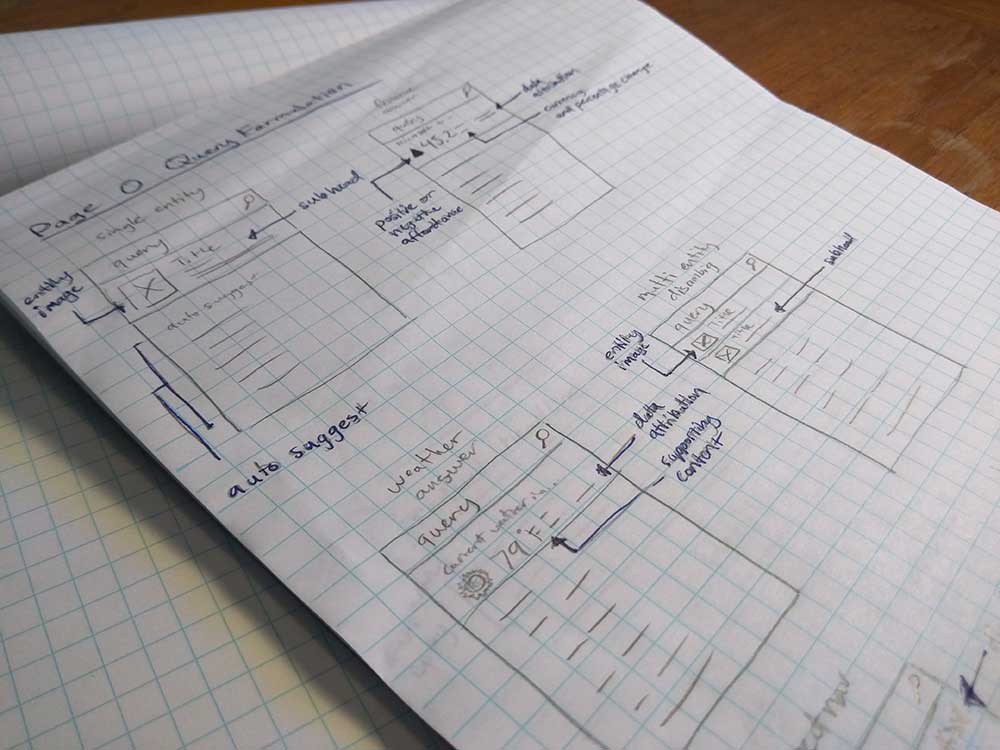 Page O Query Formulation
single entity
query
Title
subhead
entity
image
autosuggest
auto suggest
finance
answer
query
45.2
data
attribution
currency
and percentage change
positive or
negative
affordance
multi entity
disambig
query
Title
Title
subhead
entity
image
weather
answer
query
current weather in...
79°F
data
attribution
supporting
content